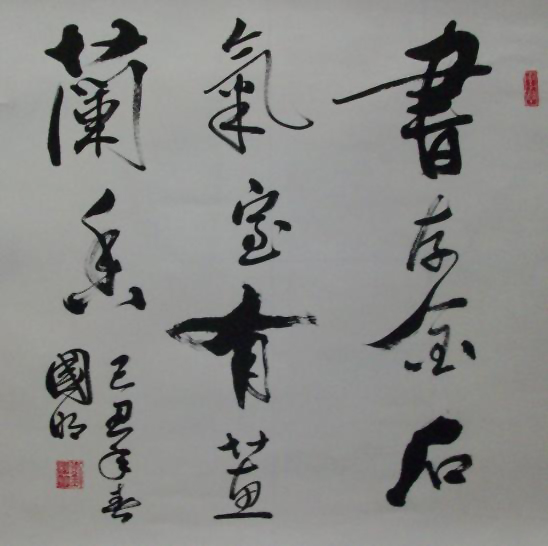 書存金石
氣室有蕙
蘭香
己丑年春
國明